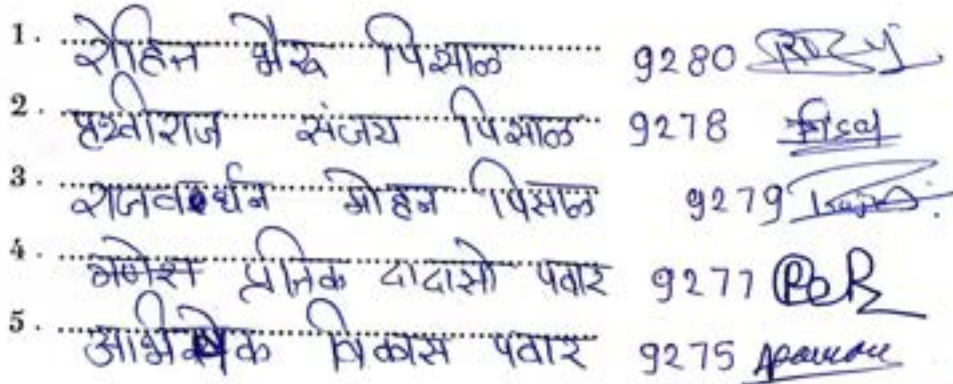 1. रोहित भैरू पिसाळ 9280
2. पृथ्वीराज संजय पिसाळ 9278 Pisal
3. राजवर्धन मोहन पिसाळ 9279
4. गणेश प्रतिक दादासो पवार 9277
5. अभिषेक विकास पवार 9275